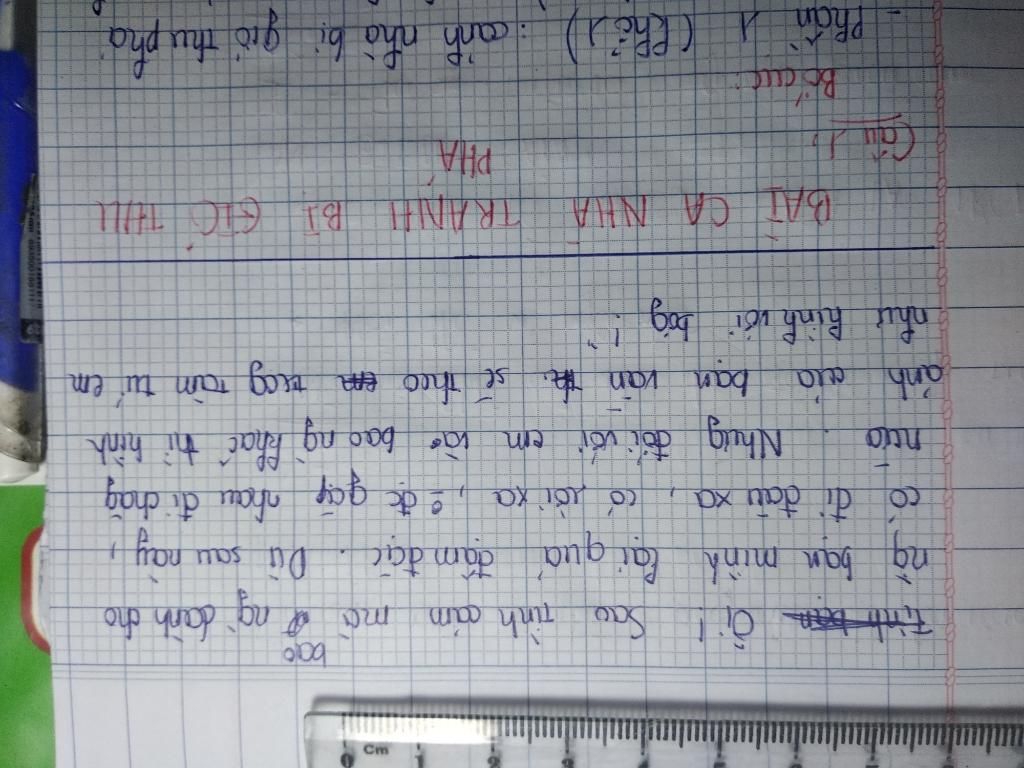 bao
Tình bạn Ôi! Sao tình cảm mà ng̀ dành cho
ng̀ bạn mình lại quá đậm đặc. Dù sau này,
có đi đâu xa, có rời xa, 0 đc gặp nhau đi chăg
nữa. Nhưg đối với em và bao ng̀ khác thì hình
ảnh của bạn vẫn sẽ theo trog tâm trí em
như hình với bóg!
BÀI CA NHÀ TRANH BỊ GIÓ THU
PHÁ
Câu 1.
Bố cục:
- Phần 1 (khổ 1): cảnh nhà bị gió thu phá
0 Cm 1 2 3